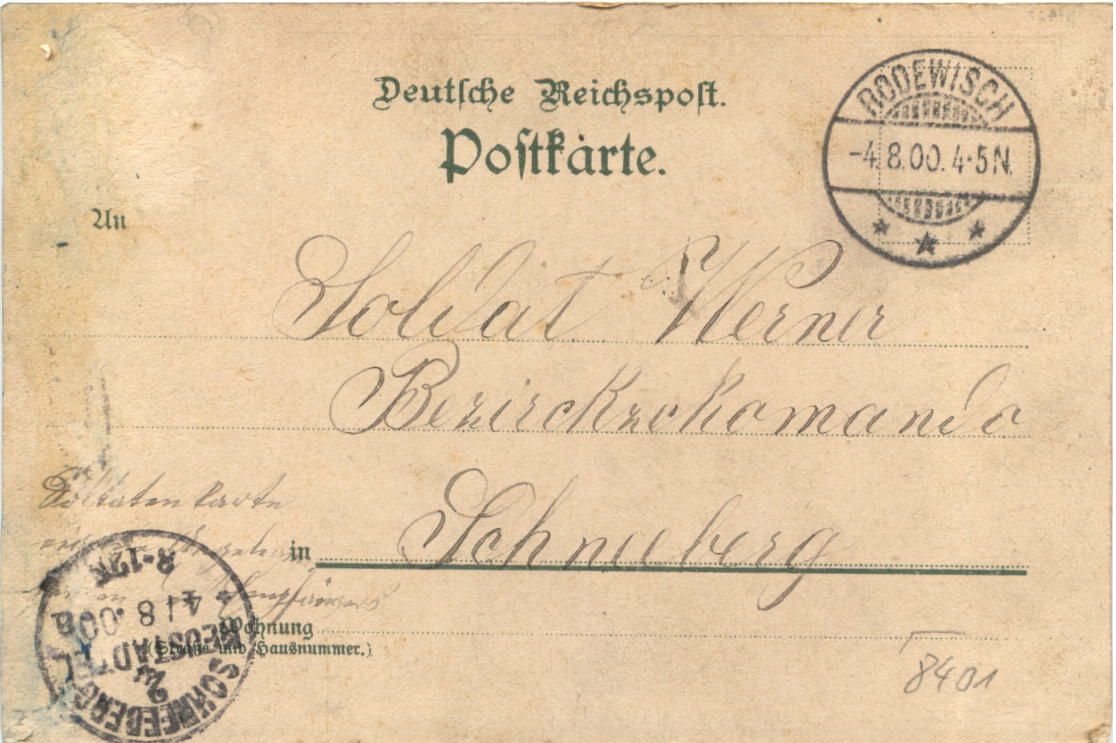 Deutsche Reichspost.
Postkarte.
RODEWISCH
-4.8.00.4-5N.
An
Soldat Werner
Bezirckzckomando
Soldatenkarte
in Schneeberg
Empfängers
Wohnung
(Straße und Hausnummer.)
8-12N
4/8.00
SCHNEEBERG
NEUSTÄDTEL
8401